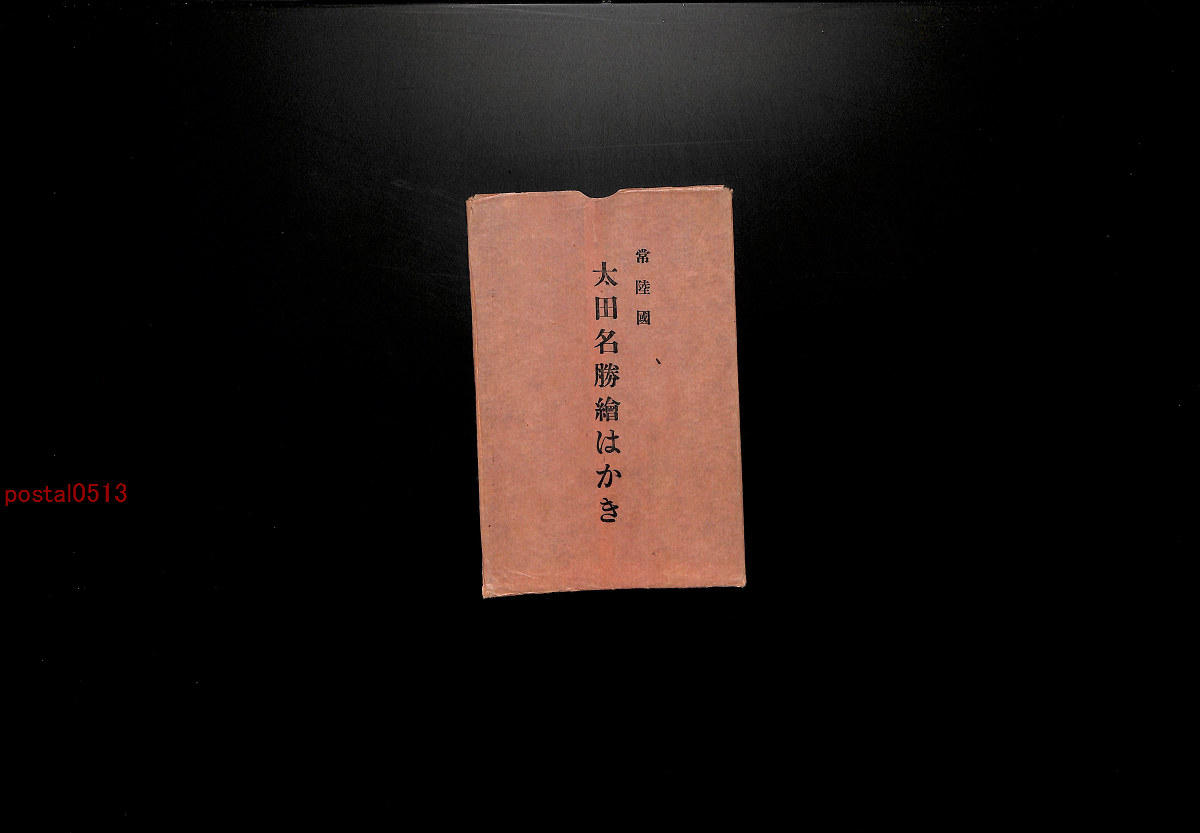 常陸國
太田名勝繪はかき
postal0513